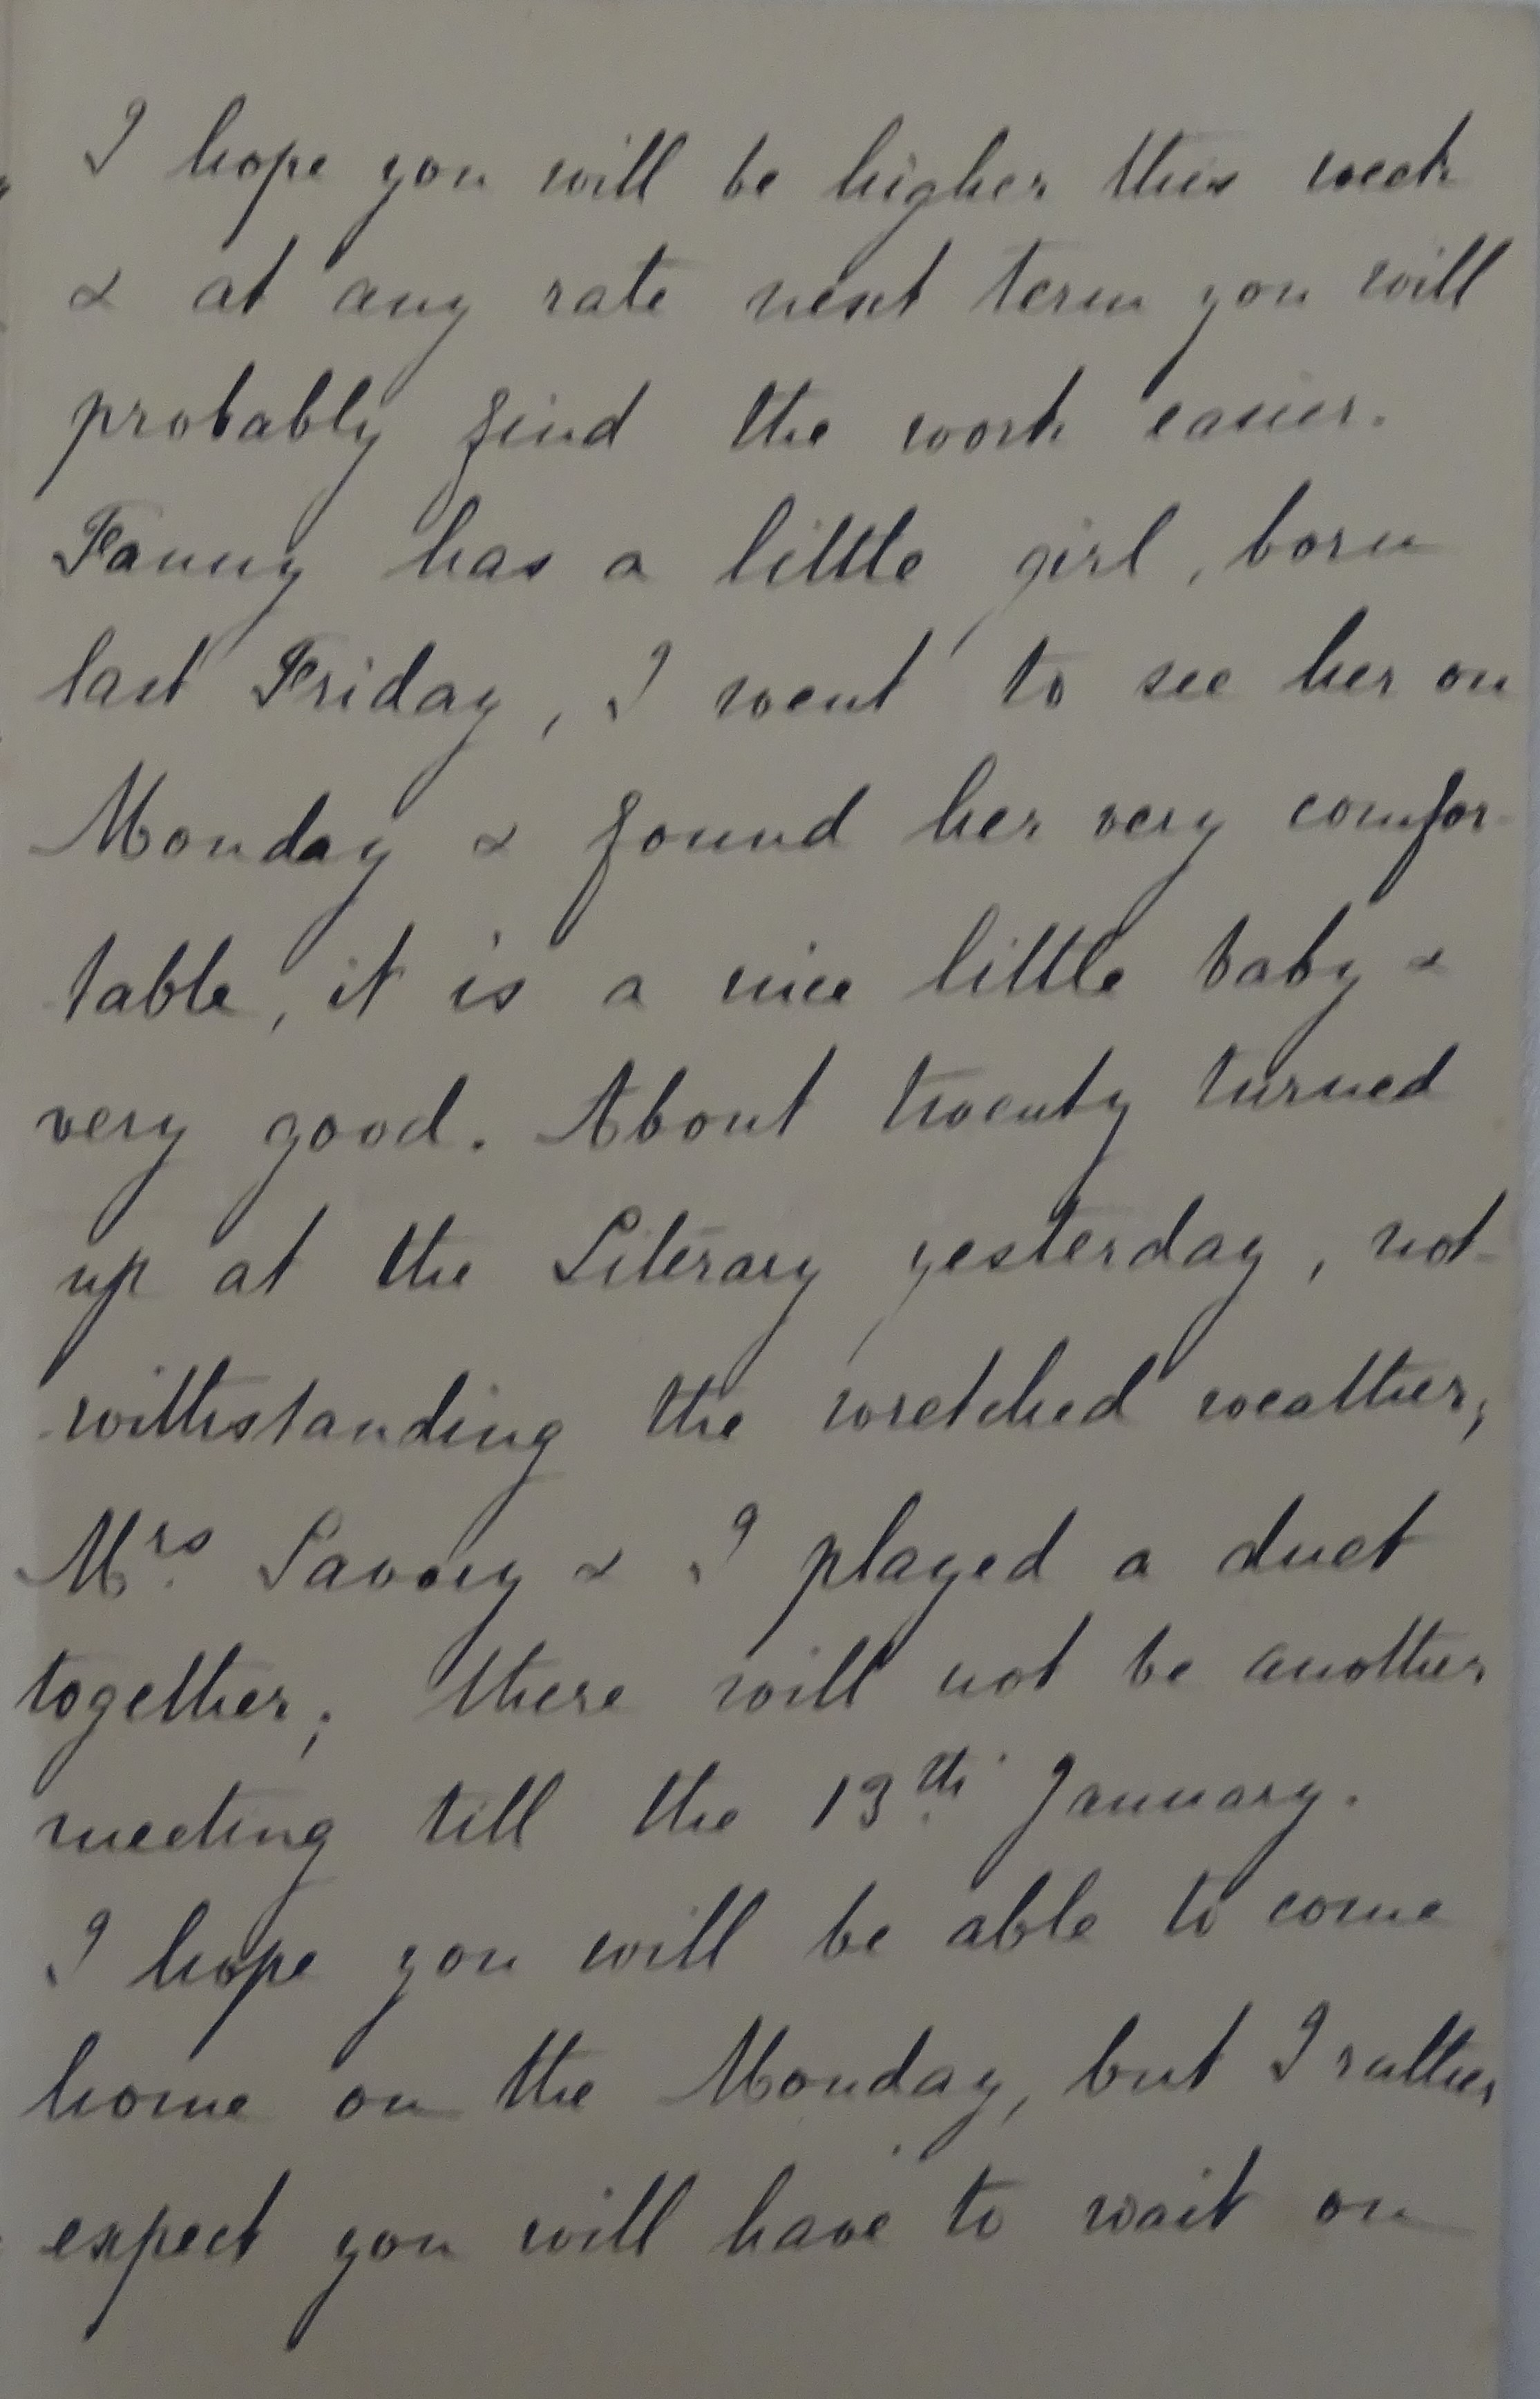 I hope you will be higher this week
& at any rate next term you will
probably find the work easier.
Fanny has a little girl, born
last Friday, I went to see her on
Monday & found her very comfor-
table, it is a nice little baby &
very good. About twenty turned
up at the Literary yesterday, not-
withstanding the wretched weather,
Mrs. Savory & I played a duet
together; there will not be another
meeting till the 13th January.
I hope you will be able to come
home on the Monday, but I rather
expect you will have to wait on